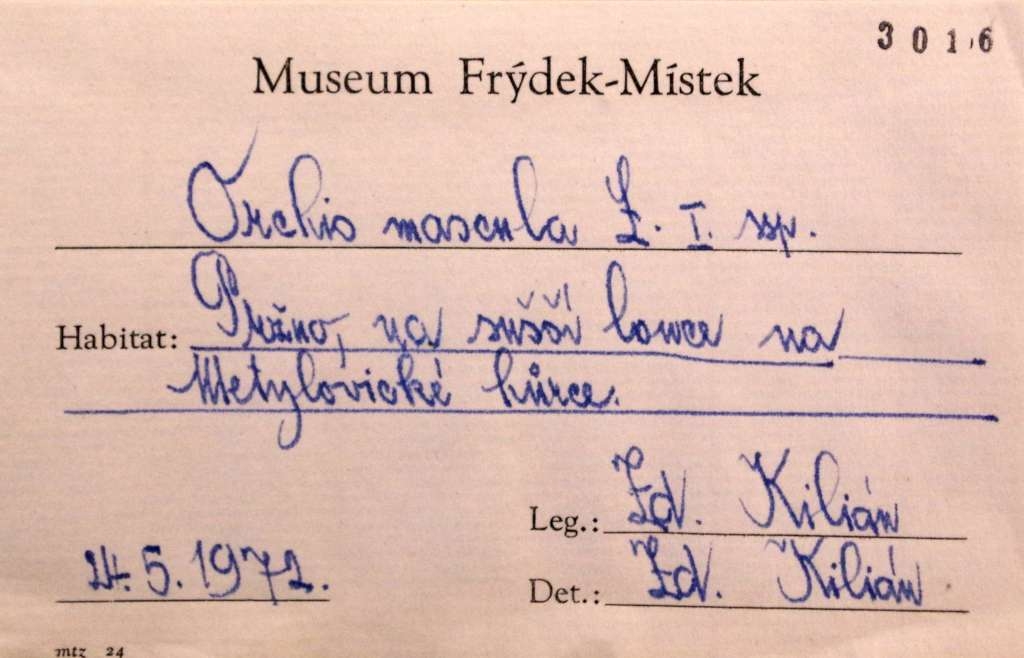 3016
Museum Frýdek-Místek
Orchis mascula L. I. ssp.
Habitat: Pržno, na sušší louce na
Metylovické hůrce.
Leg.: Zd. Kilián
24. 5. 1972. Det.: Zd. Kilián
mtz 24